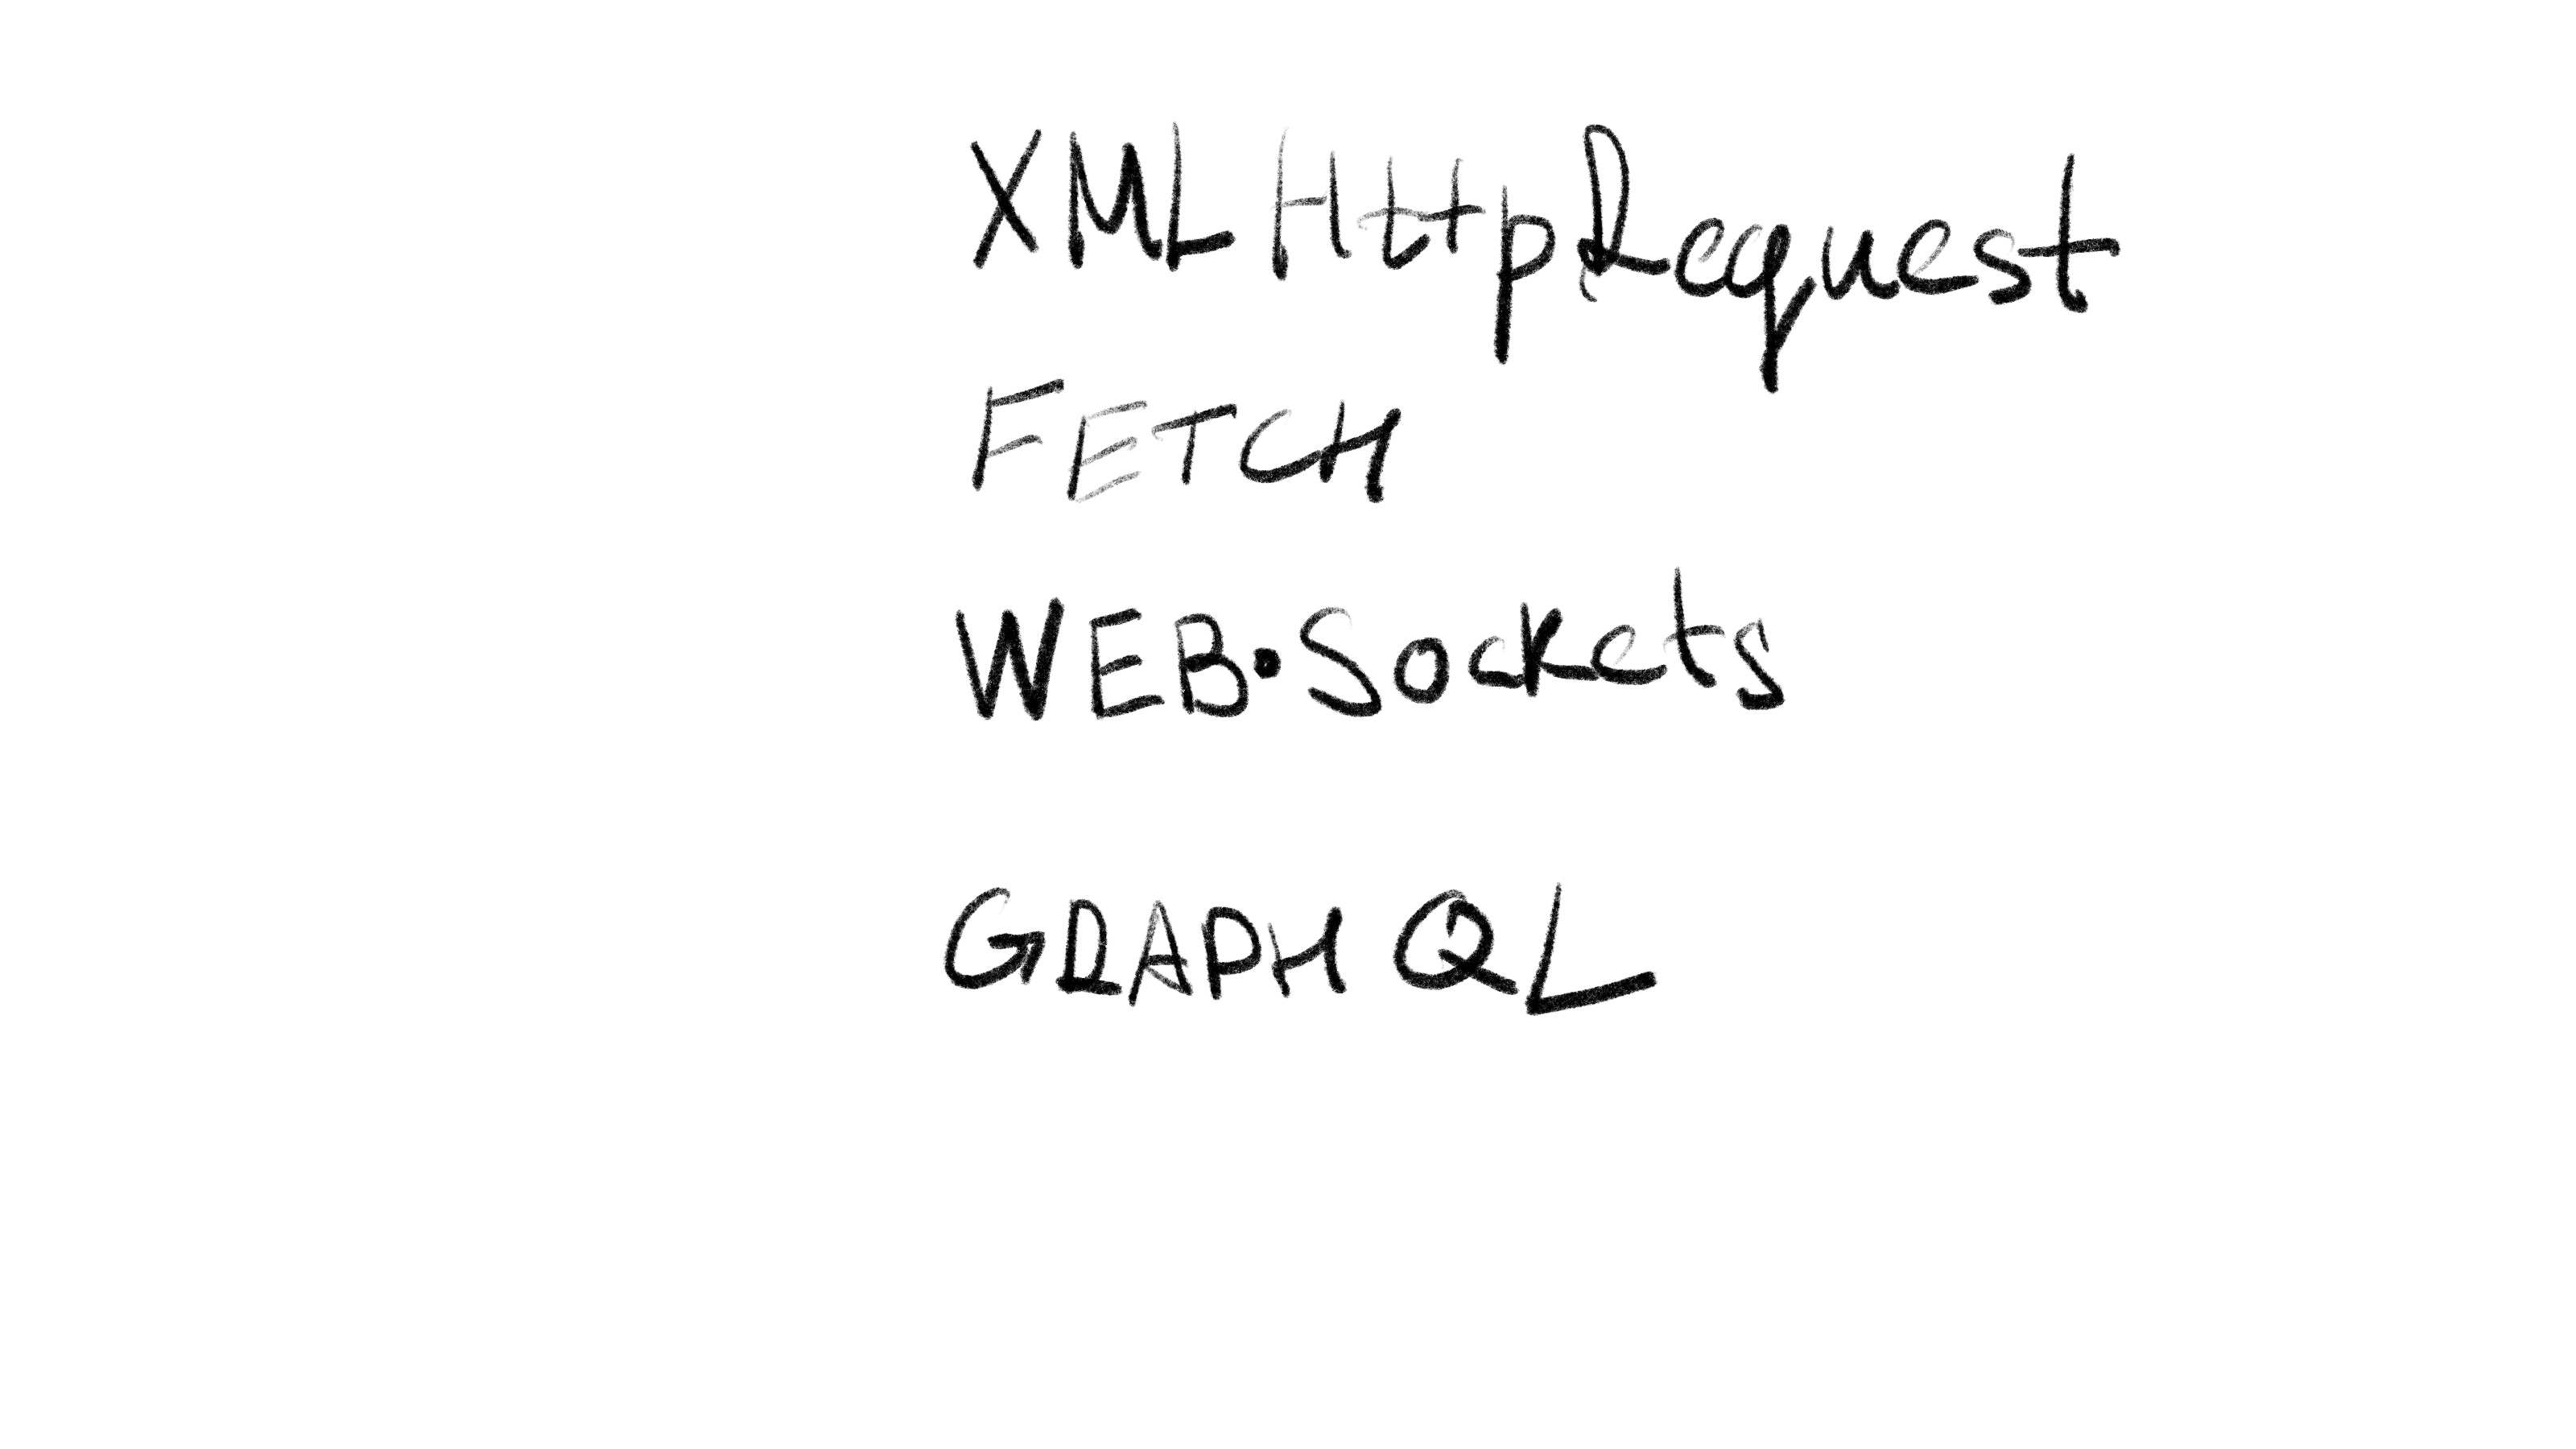 XMLHttpRequest
FETCH
WEB•Sockets
GRAPHQL